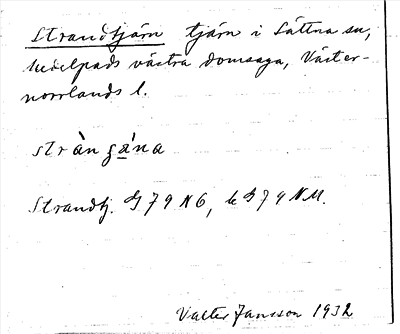 Strandtjärn tjärn i Sättna sn,
Medelpads västra domsaga, Väster-
norrlands l.
Strandtj. G 79 N6,
Valter Jansson 1932